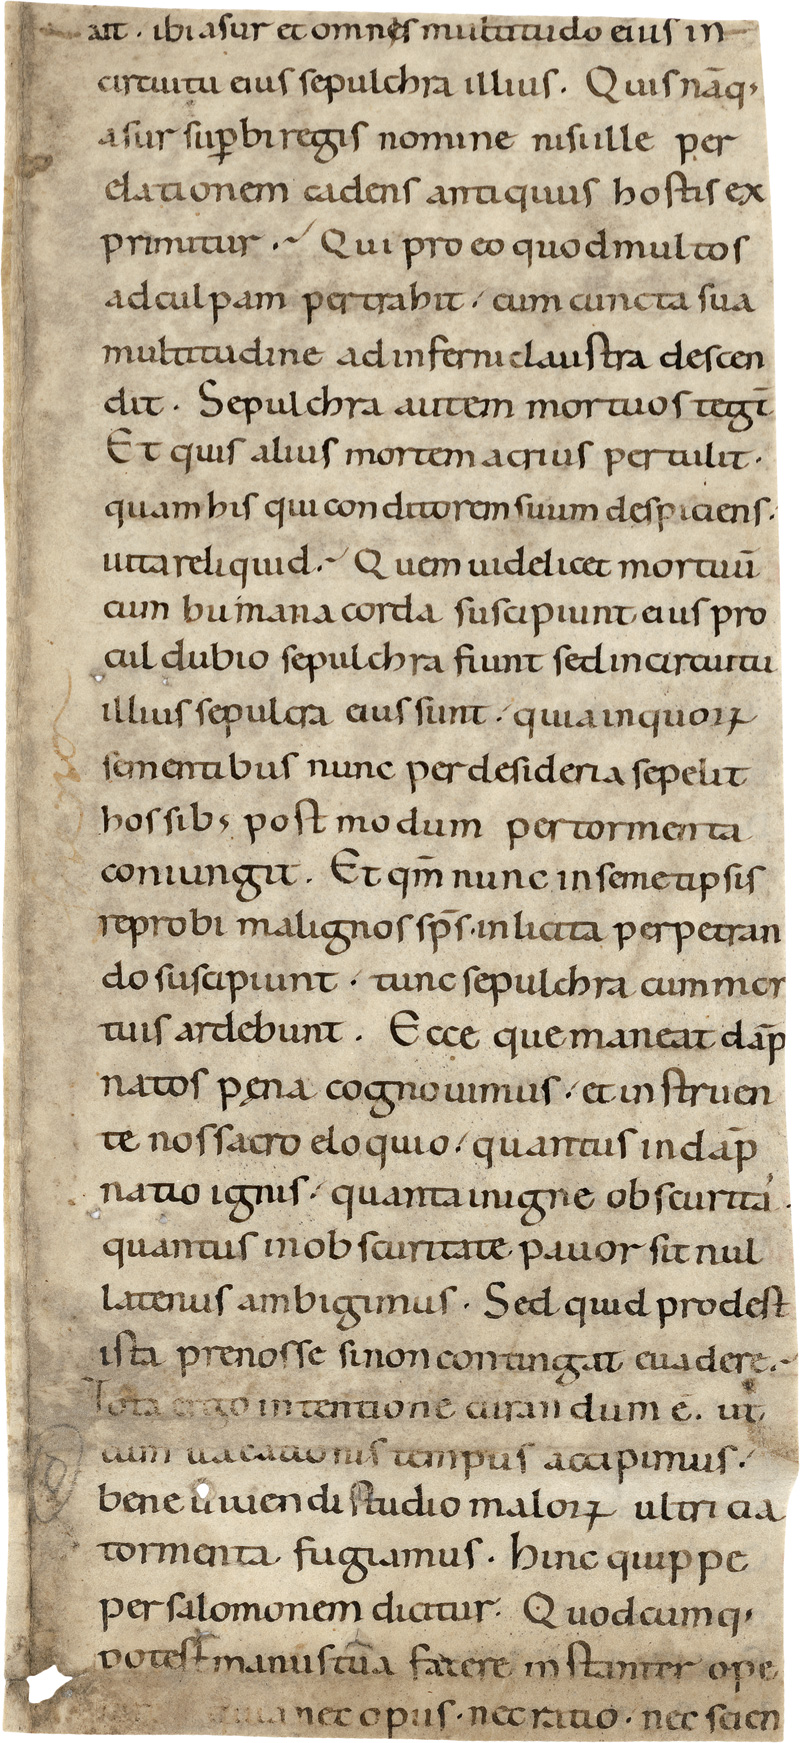 ait. ibi asur et omnes multitudo eius in
circuitu eius sepulchra illius. Quis nāq;
asur suꝑbi regis nomine nisi ille per
elationem cadens antiquus hostis ex
primitur. Qui pro eo quod multos
ad culpam pertrahit. cum cuncta sua
multitudine ad inferni claustra descen
dit. Sepulchra autem mortuos tegt̄
Et quis alius mortem acrius pertulit.
quam his qui conditorem suum despiciens.
uita reliquid. Quem uidelicet mortuū
cum humana corda suscipiunt eius pro
cul dubio sepulchra fiunt sed in circuitu
illius sepulcra eius sunt. quia in quoꝝ
se mentibus nunc per desideria sepelit
hos sib; post modum per tormenta
coniungit. Et qm̄ nunc in semetipsis
reprobi malignos sps̄. inlicita perpetran
do suscipiunt. tunc sepulchra cum mor
tuis ardebunt. Ecce que maneat dāp
natos pęna cognouimus. et instruen
te nos sacro eloquio. quantus in dāp
natio ignis. quanta in igne obscurita.
quantus in obscuritate pauor sit nul
latenus ambigimus. Sed quid prodest
ista prenosse si non contingat euadere.
Tota ergo intentione curandum ē. ut
cum uacationis tempus accipimus.
bene uiuendi studio maloꝝ ultricia
tormenta fugiamus. hinc quippe
per salomonem dicitur. Quodcumq;
potest manus tua facere instanter ope
nec opus. nec ratio. nec scien